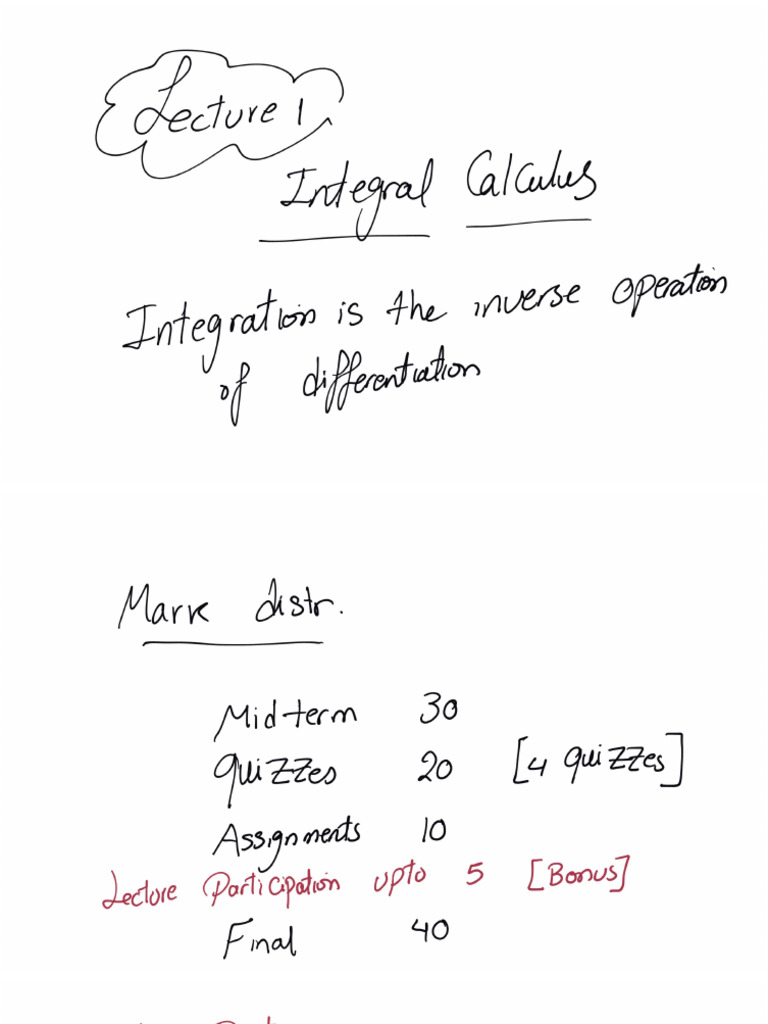 Lecture 1
Integral Calculus
Integration is the inverse operation
of differentiation
Mark distr.
Midterm 30
Quizzes 20 [4 quizzes]
Assignments 10
Lecture Participation upto 5 [Bonus]
Final 40